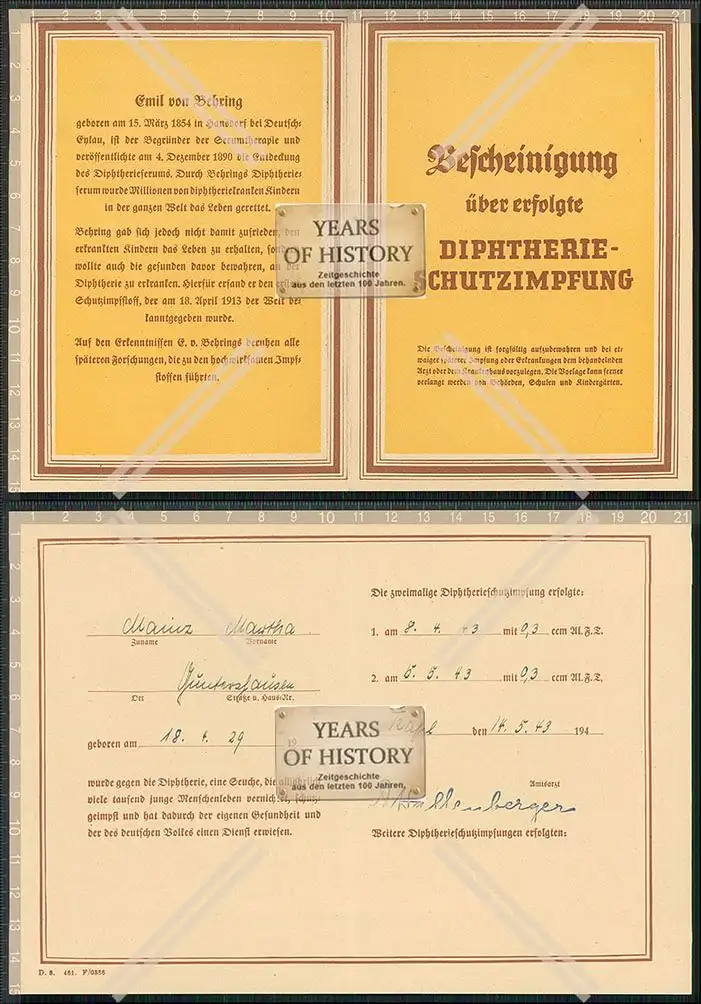 Emil von Behring
geboren am 15. März 1854 in Hansdorf bei Deutsch-
Eylau, ist der Begründer der Serumtherapie und
veröffentlichte am 4. Dezember 1890 die Entdeckung
des Diphtherieserums. Durch Behrings Diphtherie-
serum wurde Millionen von diphtheriekranken Kindern
in der ganzen Welt das Leben gerettet.
Behring gab sich jedoch nicht damit zufrieden, den
erkrankten Kindern das Leben zu erhalten, sondern
wollte auch die gesunden davor bewahren, an der
Diphtherie zu erkranken. Hierfür erfand er den ersten
Schutzimpfstoff, der am 18. April 1913 der Welt be-
kanntgegeben wurde.
Auf den Erkenntnissen E. v. Behrings beruhen alle
späteren Forschungen, die zu den hochwirksamen Impf-
stoffen führten.
Bescheinigung
über erfolgte
DIPHTHERIE-
SCHUTZIMPFUNG
Die Bescheinigung ist sorgfältig aufzubewahren und bei et-
waiger späterer Impfung oder Erkrankungen dem behandelnden
Arzt oder dem Krankenhaus vorzulegen. Die Vorlage kann ferner
verlangt werden von Behörden, Schulen und Kindergärten.
YEARS
OF HISTORY
Zeitgeschichte
aus den letzten 100 Jahren.
Mainz Martha
Zuname Vorname
Guntershausen
Ort Straße u. Haus-Nr.
geboren am 18. 4. 29 19
wurde gegen die Diphtherie, eine Seuche, die alljährlich
viele tausend junge Menschenleben vernichtet, schutz-
geimpft und hat dadurch der eigenen Gesundheit und
der des deutschen Volkes einen Dienst erwiesen.
Die zweimalige Diphtherieschutzimpfung erfolgte:
1. am 8. 4. 43 mit 0,3 ccm Al.F.T.
2. am 6. 5. 43 mit 0,3 ccm Al.F.T.
den 14. 5. 43 194
Amtsarzt
Weitere Diphtherieschutzimpfungen erfolgten:
YEARS
OF HISTORY
Zeitgeschichte
aus den letzten 100 Jahren.
D. 8. 461. F/0386